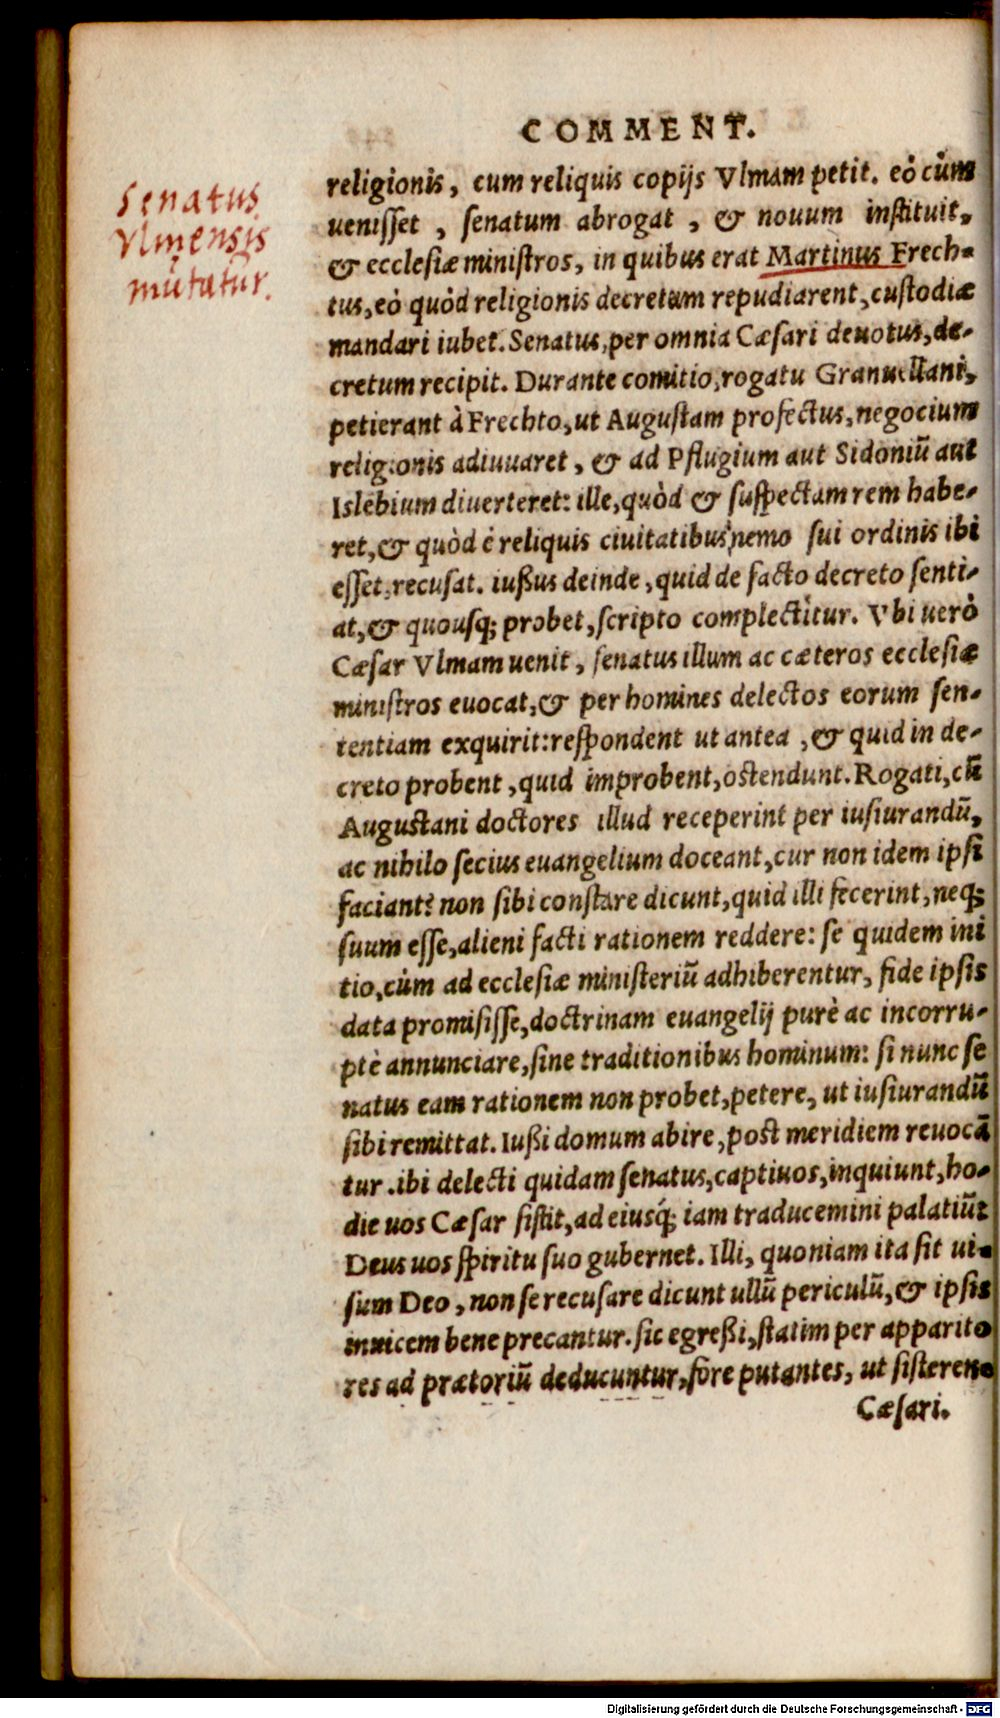 COMMENT.
Senatus
Vlmensis
mutatur.
religionis, cum reliquis copijs Vlmam petit. eò cùm
uenisset, senatum abrogat, & nouum instituit,
& ecclesiæ ministros, in quibus erat Martinus Frech-
tus, eò quòd religionis decretum repudiarent, custodiæ
mandari iubet. Senatus, per omnia Cæsari deuotus, de-
cretum recipit. Durante comitio, rogatu Granuellani,
petierant à Frechto, ut Augustam profectus, negocium
religionis adiuuaret, & ad Pflugium aut Sidoniũ aut
Islebium diuerteret: ille, quòd & suspectam rem habe-
ret, & quòd è reliquis ciuitatibus, nemo sui ordinis ibi
esset, recusat. iußus deinde, quid de facto decreto senti-
at, & quousq; probet, scripto complectitur. Vbi uerò
Cæsar Vlmam uenit, senatus illum ac cæteros ecclesiæ
ministros euocat, & per homines delectos eorum sen-
tentiam exquirit: respondent ut antea, & quid in de-
creto probent, quid improbent, ostendunt. Rogati, cũ
Augustani doctores illud receperint per iusiurandũ,
ac nihilo secius euangelium doceant, cur non idem ipsi
faciant? non sibi constare dicunt, quid illi fecerint, neq;
suum esse, alieni facti rationem reddere: se quidem ini
tio, cùm ad ecclesiæ ministeriũ adhiberentur, fide ipsis
data promisisse, doctrinam euangelij purè ac incorru-
ptè annunciare, sine traditionibus hominum: si nunc se
natus eam rationem non probet, petere, ut iusiurandũ
sibi remittat. Iußi domum abire, post meridiem reuocã
tur. ibi delecti quidam senatus, captiuos, inquiunt, ho-
die uos Cæsar sistit, ad eiusq́; iam traducemini palatiũ:
Deus uos spiritu suo gubernet. Illi, quoniam ita sit ui-
sum Deo, non se recusare dicunt ullũ periculũ, & ipsis
inuicem bene precantur. sic egreßi, statim per apparito
res ad prætoriũ deducuntur, fore putantes, ut sisteren-
Cæsari.
Digitalisierung gefördert durch die Deutsche Forschungsgemeinschaft - DFG